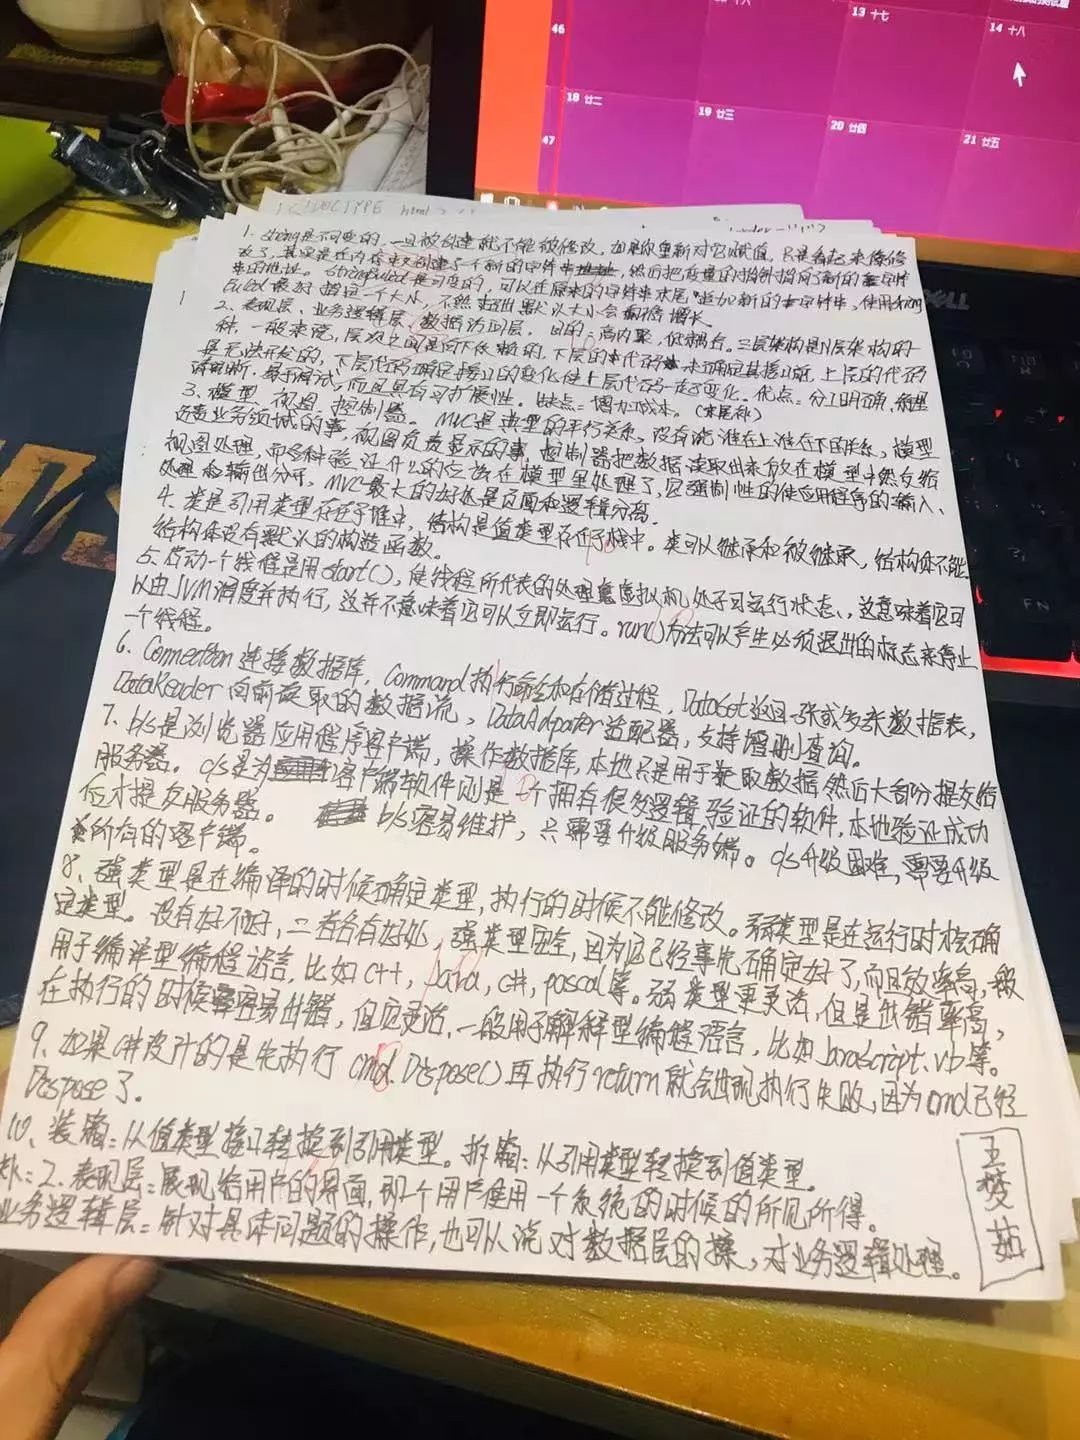 46
13 十七
14 十八
18 廿二
19 廿三
47
20 廿四
21 廿五
DELL
FN
<!DOCTYPE html
1. String是不可变的，一旦被创建就不能被修改，如果你重新对它赋值，只是看起来像修
改了，其实是在内存中又创建了一个新的字符串，然后把变量的指针指向了新的字符
串的地址。 是可变的，可以在原来的字符串末尾追加新的字符串，使用String
Build最好指定一个大小，不然超出默认大小会翻倍增长。
2、表现层、业务逻辑层、数据访问层。目的：高内聚，低耦合，三层架构是N层架构的一
种，一般来说，层次之间是向下依赖的，下层的代码未确定其接口前，上层的代码
是无法开发的，下层代码确定接口的变化使上层代码一起变化。优点：分工明确，条理
清晰，易于调试，而且具有可扩展性。缺点：增加成本。（末尾补）
3、模型、视图、控制器。MVC是典型的平行关系，没有说谁在上谁在下的关系，模型
负责业务领域的事，视图负责显示的事，控制器把数据读取出来放在模型中然后给
视图处理，而各种验证什么的应该在模型里处理了，它强制性的使应用程序的输入、
处理和输出分开，MVC最大的好处是页面和逻辑分离。
4、类是引用类型存在于堆中，结构是值类型存在于栈中。类可以继承和被继承，结构体不能。
结构体没有默认的构造函数。
5、启动一个线程是用start()，使线程所代表的处理意虚拟机处于可运行状态，这意味着它可
以由JVM调度并执行，这并不意味着它可以立即运行。run()方法可以产生必须退出的标志来停止
一个线程。
6、Connection连接数据库，Command执行命令和存储过程，DataSet返回一张或多张数据表，
DataReader向前读取的数据流，DataAdpater适配器，支持增删查询。
7、b/s是浏览器应用程序客户端，操作数据库，本地只是用于获取数据然后大部分提交给
服务器。c/s是为客户端软件则是一个拥有很多逻辑验证的软件，本地验证成功
后才提交服务器。 b/s容易维护，只需要升级服务端。c/s升级困难，需要升级
所有的客户端。
8、强类型是在编译的时候确定类型，执行的时候不能修改。弱类型是在运行时才会确
定类型。没有好不好，二者各有好处，强类型安全，因为它已经事先确定好了，而且效率高，一般
用于编译型编程语言，比如c++，java，c#，pascal等。弱类型更灵活，但是出错率高，
在执行的时候容易出错，但它灵活，一般用于解释型编程语言，比如JavaScript、vb等。
9、如果c#设计的是先执行cmd.Dispose()再执行return就会出现执行失败，因为cmd已经
Dispose了。
10、装箱：从值类型接口转换到引用类型。拆箱：从引用类型转换到值类型。
补：2、表现层：展现给用户的界面，即一个用户使用一个系统的时候的所见所得。
业务逻辑层：针对具体问题的操作，也可以说对数据层的操，对业务逻辑处理。
王梦茹